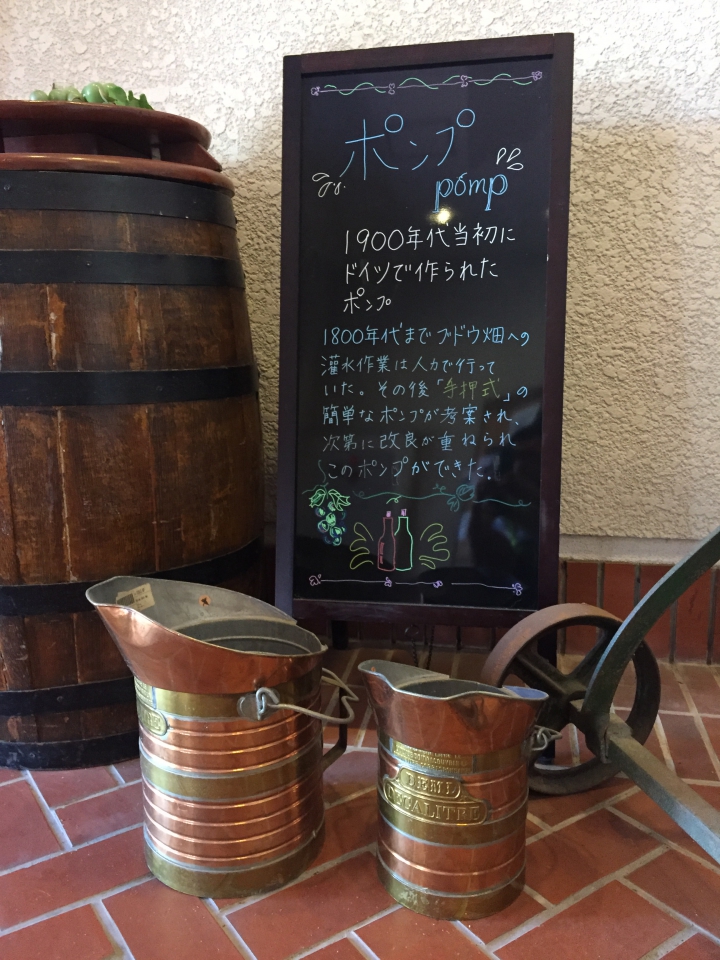 ポンプ
pomp
1900年代当初に
ドイツで作られた
ポンプ
1800年代までブドウ畑への
灌水作業は人力で行って
いた。その後「手押式」の
簡単なポンプが考案され、
次第に改良が重ねられ
このポンプができた。
DEMI
DECALITRE